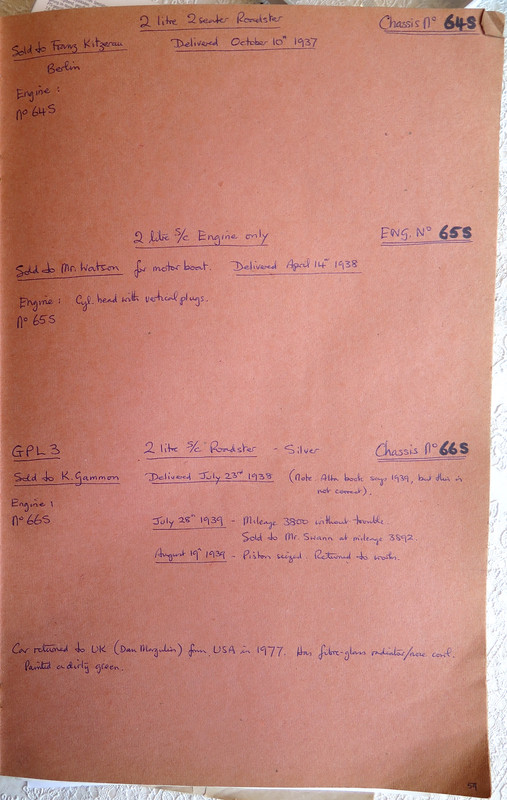 2 litre 2 seater Roadster Chassis No 64S
Sold to Franz Kitzerau Delivered October 10th 1937
Berlin
Engine :
No 64S
2 litre S/c Engine only ENG. No 65S
Sold to Mr. Watson for motor boat. Delivered April 14th 1938
Engine : Cyl. head with vertical plugs.
No 65S
GPL 3 2 litre S/c Roadster - Silver Chassis No 66S
Sold to K. Gammon Delivered July 23rd 1938 (Note Alta book says 1939, but this is
not correct).
Engine :
No 66S
July 28th 1939 - Mileage 3800 without trouble.
Sold to Mr. Swann at mileage 3892.
August 19th 1939 - Piston seized. Returned to works.
Car returned to UK (Dan Margulies) from USA in 1977. Has fibre-glass radiator/nose cowl.
Painted a dirty green.
59